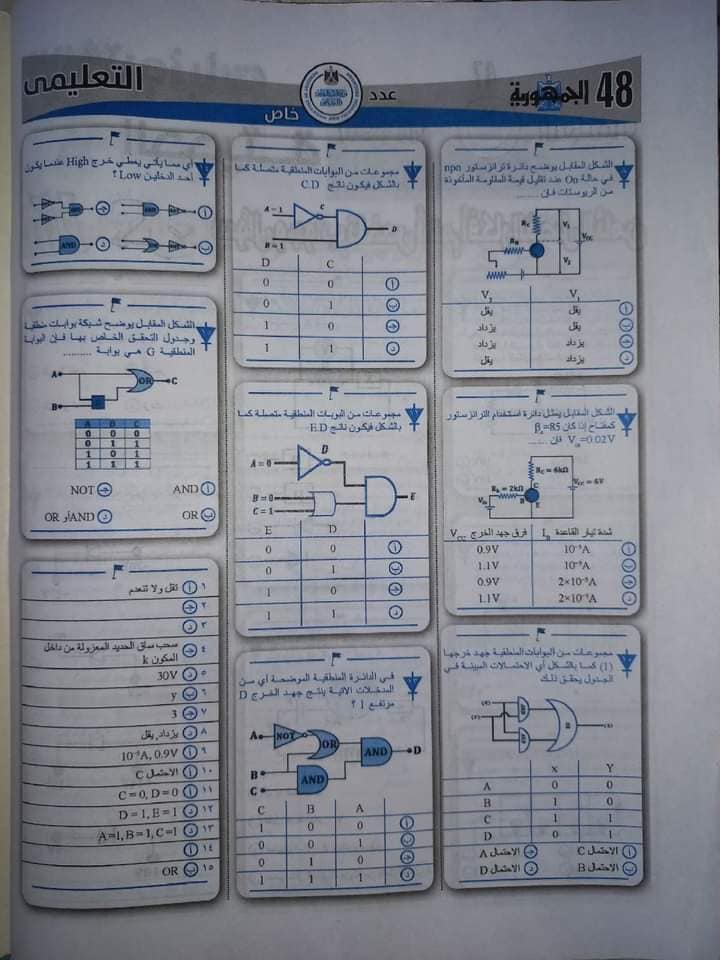 48 الجمهورية
عدد
خاص
التعليمى
الشكل المقابل يوضح دائرة ترانزستور npn
فى حالة On عند تقليل قيمة المقاومة المأخوذة
من الريوستات فإن ......
Rc
V₁
RB
Vcc
V₂
V₁ V₂
أ يقل يقل
ب يقل يزداد
جـ يزداد يزداد
د يزداد يقل
الشكل المقابل يمثل دائرة استخدام الترانزستور
كمفتاح إذا كان βe=85
V =0.02V فإن ......
Rc = 6kΩ
Vcc = 6V
RB = 2kΩ
Vin
B
C
E
شدة تيار القاعدة IB فرق جهد الخرج
أ 10⁻⁵A 0.9V
ب 10⁻⁵A 1.1V
جـ 2×10⁻⁵A 0.9V
د 2×10⁻⁵A 1.1V
مجموعات من البوابات المنطقية جهد خرجها
(1) كما بالشكل أي الاحتمالات المبينة في
الجدول يحقق ذلك
X Y
A 0 0
B 1 0
C 1 1
D 0 1
أ الاحتمال C جـ الاحتمال A
ب الاحتمال B د الاحتمال D
مجموعات من البوابات المنطقية متصلة كما
بالشكل فيكون ناتج C.D
A = 1
C
D
B = 1
C D
أ 0 0
ب 1 0
جـ 0 1
د 1 1
مجموعات من البوبات المنطقية متصلة كما
بالشكل فيكون ناتج E.D
D
A = 0
B = 0
C = 1
E
D E
أ 0 0
ب 1 0
جـ 0 1
د 1 1
في الدائرة المنطقية الموضحة أي من
المدخلات الآتية ينتج جهد الخرج D
مرتفع 1 ؟
A
NOT
OR
AND
D
B
C
AND
A B C
أ 0 0 1
ب 1 0 0
جـ 0 1 0
د 1 1 1
أي مما يأتي يعطي خرج High عندما يكون
أحد الدخلين Low ؟
أ جـ
ب د
AND
الشكل المقابل يوضح شبكة بوابات منطقية
وجدول التحقق الخاص بها فإن البوابة
المنطقية G هي بوابة ..........
A
OR
C
B
A B C
0 0 0
0 1 1
1 0 1
1 1 1
أ AND جـ NOT
ب OR د AND أو OR
١ أ تقل ولا تنعدم
٢ جـ
٣ د
٤ جـ سحب ساق الحديد المعزولة من داخل
المكون k
٥ د 30V
٦ ب y
٧ جـ 3
٨ د يزداد، يقل
٩ أ 10⁻⁵A, 0.9V
١٠ أ الاحتمال C
١١ أ C=0, D=0
١٢ د D=1, E=1
١٣ د A=1, B=1, C=1
١٤ أ
١٥ ب OR